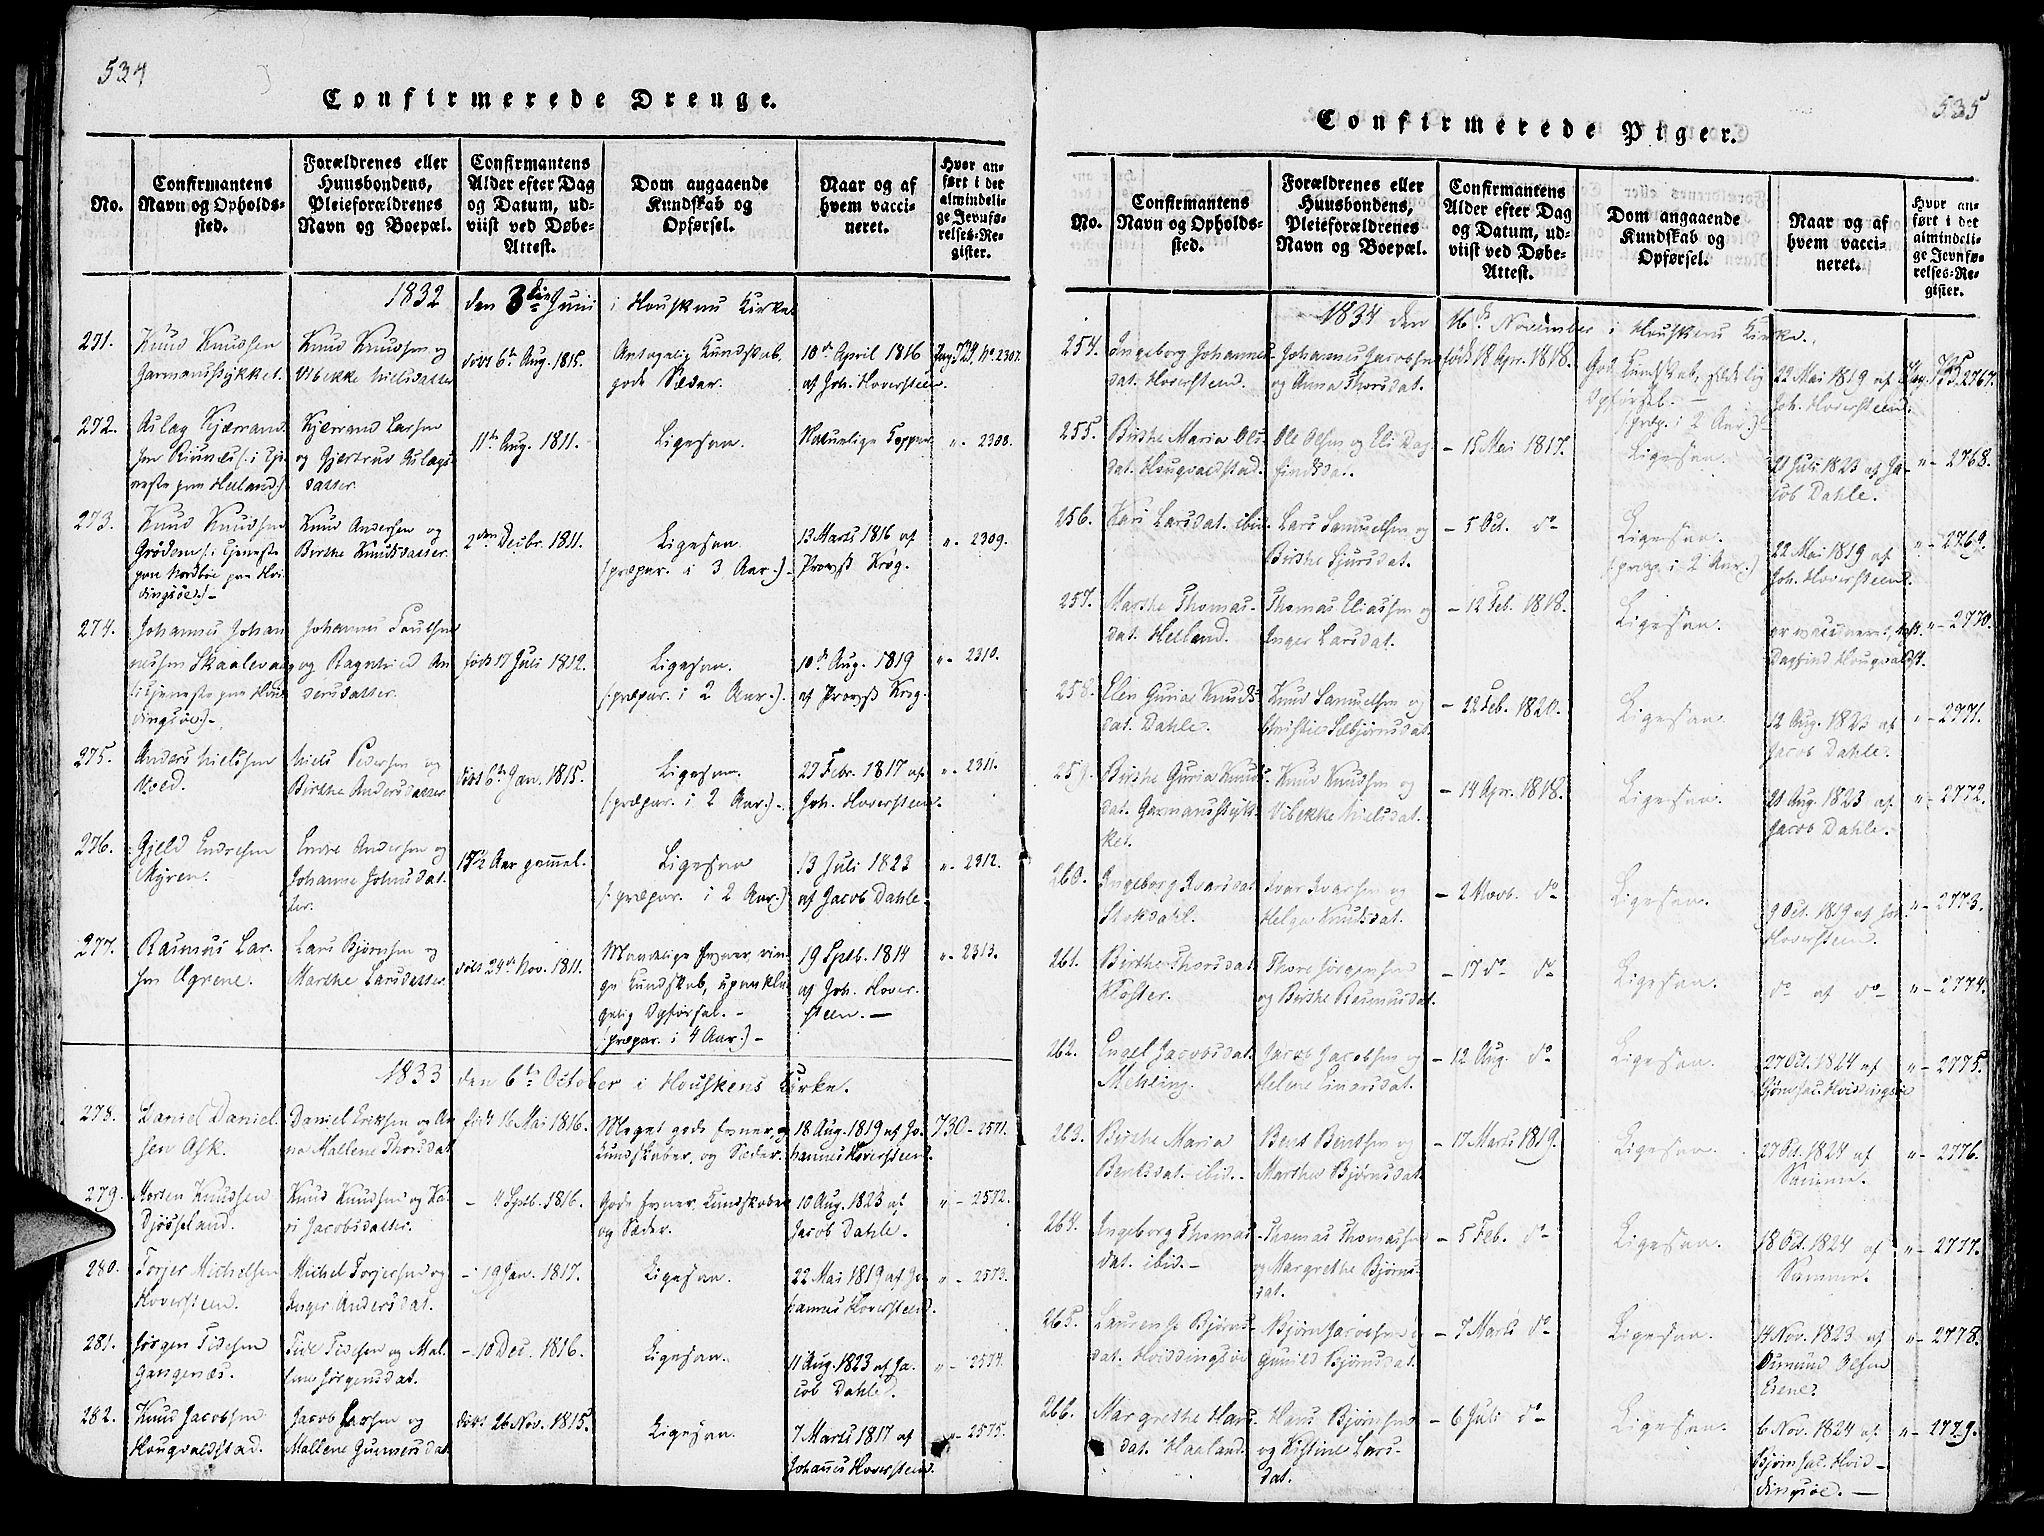 534
Confirmerede Drenge.
No.
Confirmantens
Navn og Opholds-
sted.
Forældrenes eller
Huusbondens,
Pleieforældrenes
Navn og Boepæl.
Confirmantens
Alder efter Dag
og Datum, ud-
viist ved Døbe-
Attest.
Dom angaaende
Kundskab og
Opførsel.
Naar og af
hvem vacci-
neret.
Hvor an-
ført i det
almindeli-
ge Jevnfø-
relses-Re-
gister.
1832 den 3die Junii i Houskens Kirke
271. Knud Knudsen
Garmansstykket.
Knud Knudsen og
Vibekke Nielsdatter
døbt 6te Aug. 1815.
Antagelig Kundskab,
gode Sæder.
10de April 1816
af Joh. Hoversteen.
Pag. 724. No. 2307.
272. Aslag Kjærrand-
sen Riisnæs (: i Tje-
neste paa Helland :)
Kjerrand Larsen
og Gjertrud Aslags-
datter
11te Aug. 1811.
Ligesaa.
Naturlige Kopper
" - 2308.
273. Knud Knudsen
Grødem (: i Tjeneste
paa Nordbøe paa Hvi-
dingsøe :)
Knud Andersen og
Birthe Knudsdatter.
2den Decbr. 1811.
Ligesaa.
(: præpar. i 3 Aar. :)
13 Marts 1816 af
Provst Krog.
" - 2309.
274. Johannes Johan-
nessen Skaalevig
(: i Tjeneste paa Hvid-
dingsøe :)
Johannes Poulsen
og Ragnhild An-
dersdatter.
født 17 Juli 1812.
Ligesaa.
(: præpar. i 2 Aar. :)
10de Aug. 1819
af Provst Krog.
" - 2310.
275. Anders Nielsen
Vold.
Niels Pedersen og
Birthe Andersdatter
døbt 6te Jan. 1815.
Ligesaa.
(: præpar. i 2 Aar. :)
27 Febr. 1817 af
Joh. Hoversteen.
" - 2311.
276. Gjeld Endresen
Myren.
Endre Andersen og
Johanne Johnsdat-
ter.
15 1/2 Aar gammel.
Ligesaa
(: præpar. i 2 Aar. :)
13 Juli 1823
af Jacob Dahle.
" - 2312.
277. Rasmus Lar-
sen Øgrene.
Lars Bjørnsen og
Marthe Larsdatter.
døbt 24de Nov. 1811.
Maadelige Evner, rin-
ge Kundskab, upaakla-
gelig Opførsel. -
(: præpar. i 4 Aar. :)
19 Septb. 1814
af Joh. Hover-
steen. -
" - 2313.
1833 den 6te October i Houskens Kirke.
278. Daniel Daniel-
sen Ask.
Daniel Eriksen og An-
na Mallene Thorsdat.
født 16 Mai 1816.
Meget gode Evner og
Kundskaber, og Sæder.
18 Aug. 1819 af Jo-
hannes Hoversteen.
730 - 2571.
279. Morten Knudsen
Djøseland.
Knud Knudsen og Ka-
ri Jacobsdatter.
- 4 Septb. 1816.
Gode Evner, Kundskaber
og Sæder.
10 Aug. 1823 af
Jacob Dahle.
" - 2572.
280. Torjer Michelsen
Hoversteen.
Michel Torjersen og
Inger Andersdat.
- 19 Jan. 1817.
Ligesaa.
22 Mai 1819 af Jo-
hannes Hoversteen.
" - 2573.
281. Jørgen Tidesen
Gangenæs.
Tide Tidesen og Mal-
lene Jørgensdat.
- 10 Dec. 1816.
Ligesaa.
11 Aug. 1823 af Ja-
cob Dahle.
" - 2574.
282. Knud Jacobsen
Hougvaldstad.
Jacob Larsen og
Mallene Gunnersdat
døbt 26 Nov. 1815.
Ligesaa.
7 Marts 1817 af
Johannes Hoversteen.
" - 2575.
535
Confirmerede Piger.
No.
Confirmantens
Navn og Opholds-
sted.
Forældrenes eller
Huusbondens,
Pleieforældrenes
Navn og Boepæl.
Confirmantens
Alder efter Dag
og Datum, ud-
viist ved Døbe-
Attest.
Dom angaaende
Kundskab og
Opførsel.
Naar og af
hvem vacci-
neret.
Hvor an-
ført i det
almindeli-
ge Jevnfø-
relses-Re-
gister.
1834 den 16de November i Houskens Kirke.
254. Ingeborg Johannes-
dat. Hoversteen.
Johannes Jacobsen
og Anna Thorsdat.
født 18 Apr. 1818.
God Kundskab, sædelig
Opførsel. -
(præp. i 2 Aar.)
22 Mai 1819 af
Joh. Hoversteen.
Pag. 735. 2767.
255. Birthe Maria Ols-
dat. Hougvaldstad.
Ole Olsen og Eli Dag-
findsdat.
- 15 Mai 1817.
Ligesaa.
21 Juli 1823 af Ja-
cob Dahle.
" - 2768.
256. Kari Larsdat. ibid.
Lars Samuelsen og
Birthe Sjursdat.
- 5 Oct. do
Ligesaa.
(præp. i 2 Aar.)
22 Mai 1819 af
Joh. Hoversteen.
" - 2769.
257. Marthe Thomas-
dat. Helland.
Thomas Eliassen og
Inger Larsdat.
- 12 Feb. 1818.
Ligesaa.
er vaccineret,
Dagfind Hougvaldst.
" - 2770.
258. Elen Guria Knuds-
dat. Dahle.
Knud Samuelsen og
Christie Sebjørnsdat.
- 22 Feb. 1820.
Ligesaa.
12 Aug. 1823 af
Jacob Dahle.
" - 2771.
259. Birthe Guria Knuds-
dat. Garmansstyk-
ket.
Knud Knudsen og
Vibekke Nielsdat.
- 14 Apr. 1818.
Ligesaa.
21 Aug. 1823 af
Jacob Dahle.
" - 2772.
260. Ingeborg Ivarsdat.
Stokdahl.
Ivar Ivarsen og
Helga Knudsdat.
- 2 Novb. do
Ligesaa.
9 Oct. 1819 af Joh.
Hoversteen.
" - 2773.
261. Birthe Thorsdat.
Kloster.
Thore Jørgensen
og Birthe Rasmusdat.
- 17 do do
Ligesaa.
do af do
" - 2774.
262. Engel Jacobsdat.
Mehling.
Jacob Jacobsen og
Helene Einersdat.
- 12 Aug. do
Ligesaa.
27 Oct. 1824 af
Bjørn Jac. Hvidingsøe
" - 2775.
263. Birthe Maria
Bentsdat. ibid.
Bent Bentsen og
Marthe Bjørnsdat.
- 17 Marts 1819.
Ligesaa.
27 Oct. 1824 af
Samme.
" - 2776.
264. Ingeborg Thomas-
dat. ibid. -
Thomas Thomassen
og Margrethe Bjørns-
dat.
- 5 Feb. do
Ligesaa.
18 Oct. 1824 af
Samme.
" - 2777.
265. Laurense Bjørns-
dat. Hviddingsøe
Bjørn Jacobsen og
Gunild Bjørnsdat.
- 7 Marts do
Ligesaa.
14 Nov. 1823 af
Osmund Olsen
Eiene.
" - 2778.
266. Margrethe Hans-
dat. Haaland.
Hans Bjørnsen
og Kistine Lars-
dat.
- 6 Juli do
Ligesaa.
6 Nov. 1824 af
Bjørn Jac. Hvid-
dingsøe. -
" - 2779.